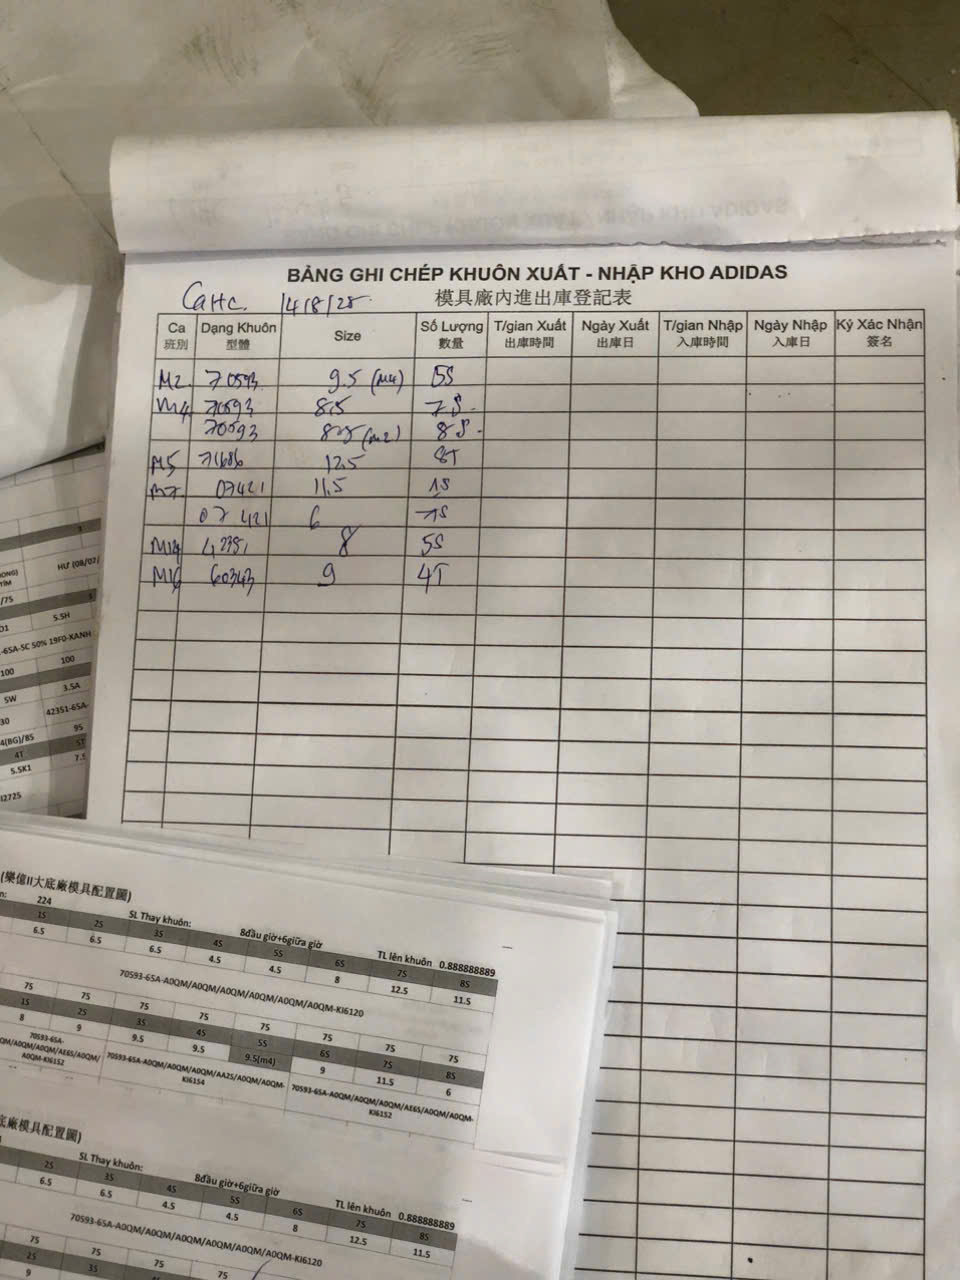 BẢNG GHI CHÉP KHUÔN XUẤT - NHẬP KHO ADIDAS
CaHC. 14/8/25
模具廠內進出庫登記表
Ca Dạng Khuôn Size Số Lượng T/gian Xuất Ngày Xuất T/gian Nhập Ngày Nhập Ký Xác Nhận
班別 型體 數量 出庫時間 出庫日 入庫時間 入庫日 簽名
M2 70593 9.5 (M4) 5S
M4 70593 8.5 7S
70593 8.5 (M2) 8S
M5 71686 12.5 8T
M7 07421 11.5 1S
07421 6 7S
M14 42351 8 5S
M16 60343 9 4T
HƯ (08/07/
TÍM
/75
5.5H
-65A-5C 50% 19F0-XANH
100 100
5W 3.5A
30 42351-65A-
4(BG)/85 95
4T 5T
5.5K1 7.5
I2725
(樂億II大底廠模具配置圖)
224 SL Thay khuôn: 8đầu giờ+6giữa giờ TL lên khuôn 0.888888889
1S 2S 3S 4S 5S 6S 7S 8S
6.5 6.5 6.5 4.5 4.5 8 12.5 11.5
70593-65A-A0QM/A0QM/A0QM/A0QM/A0QM/A0QM-KI6120
75 75 75 75 75 75 75 75
1S 2S 3S 4S 5S 6S 7S 8S
8 9 9.5 9.5 9.5(m4) 9 11.5 6
70593-65A-
QM/A0QM/A0QM/AE65/A0QM/
A0QM-KI6152
70593-65A-A0QM/A0QM/A0QM/AA25/A0QM/A0QM-
KI6154
70593-65A-A0QM/A0QM/A0QM/AE65/A0QM/A0QM-
KI6152
底廠模具配置圖)
SL Thay khuôn: 8đầu giờ+6giữa giờ TL lên khuôn 0.888888889
2S 3S 4S 5S 6S 7S 8S
6.5 6.5 4.5 4.5 8 12.5 11.5
70593-65A-A0QM/A0QM/A0QM/A0QM/A0QM/A0QM-KI6120
75 75 75 75 75 75 75
2S 3S
9